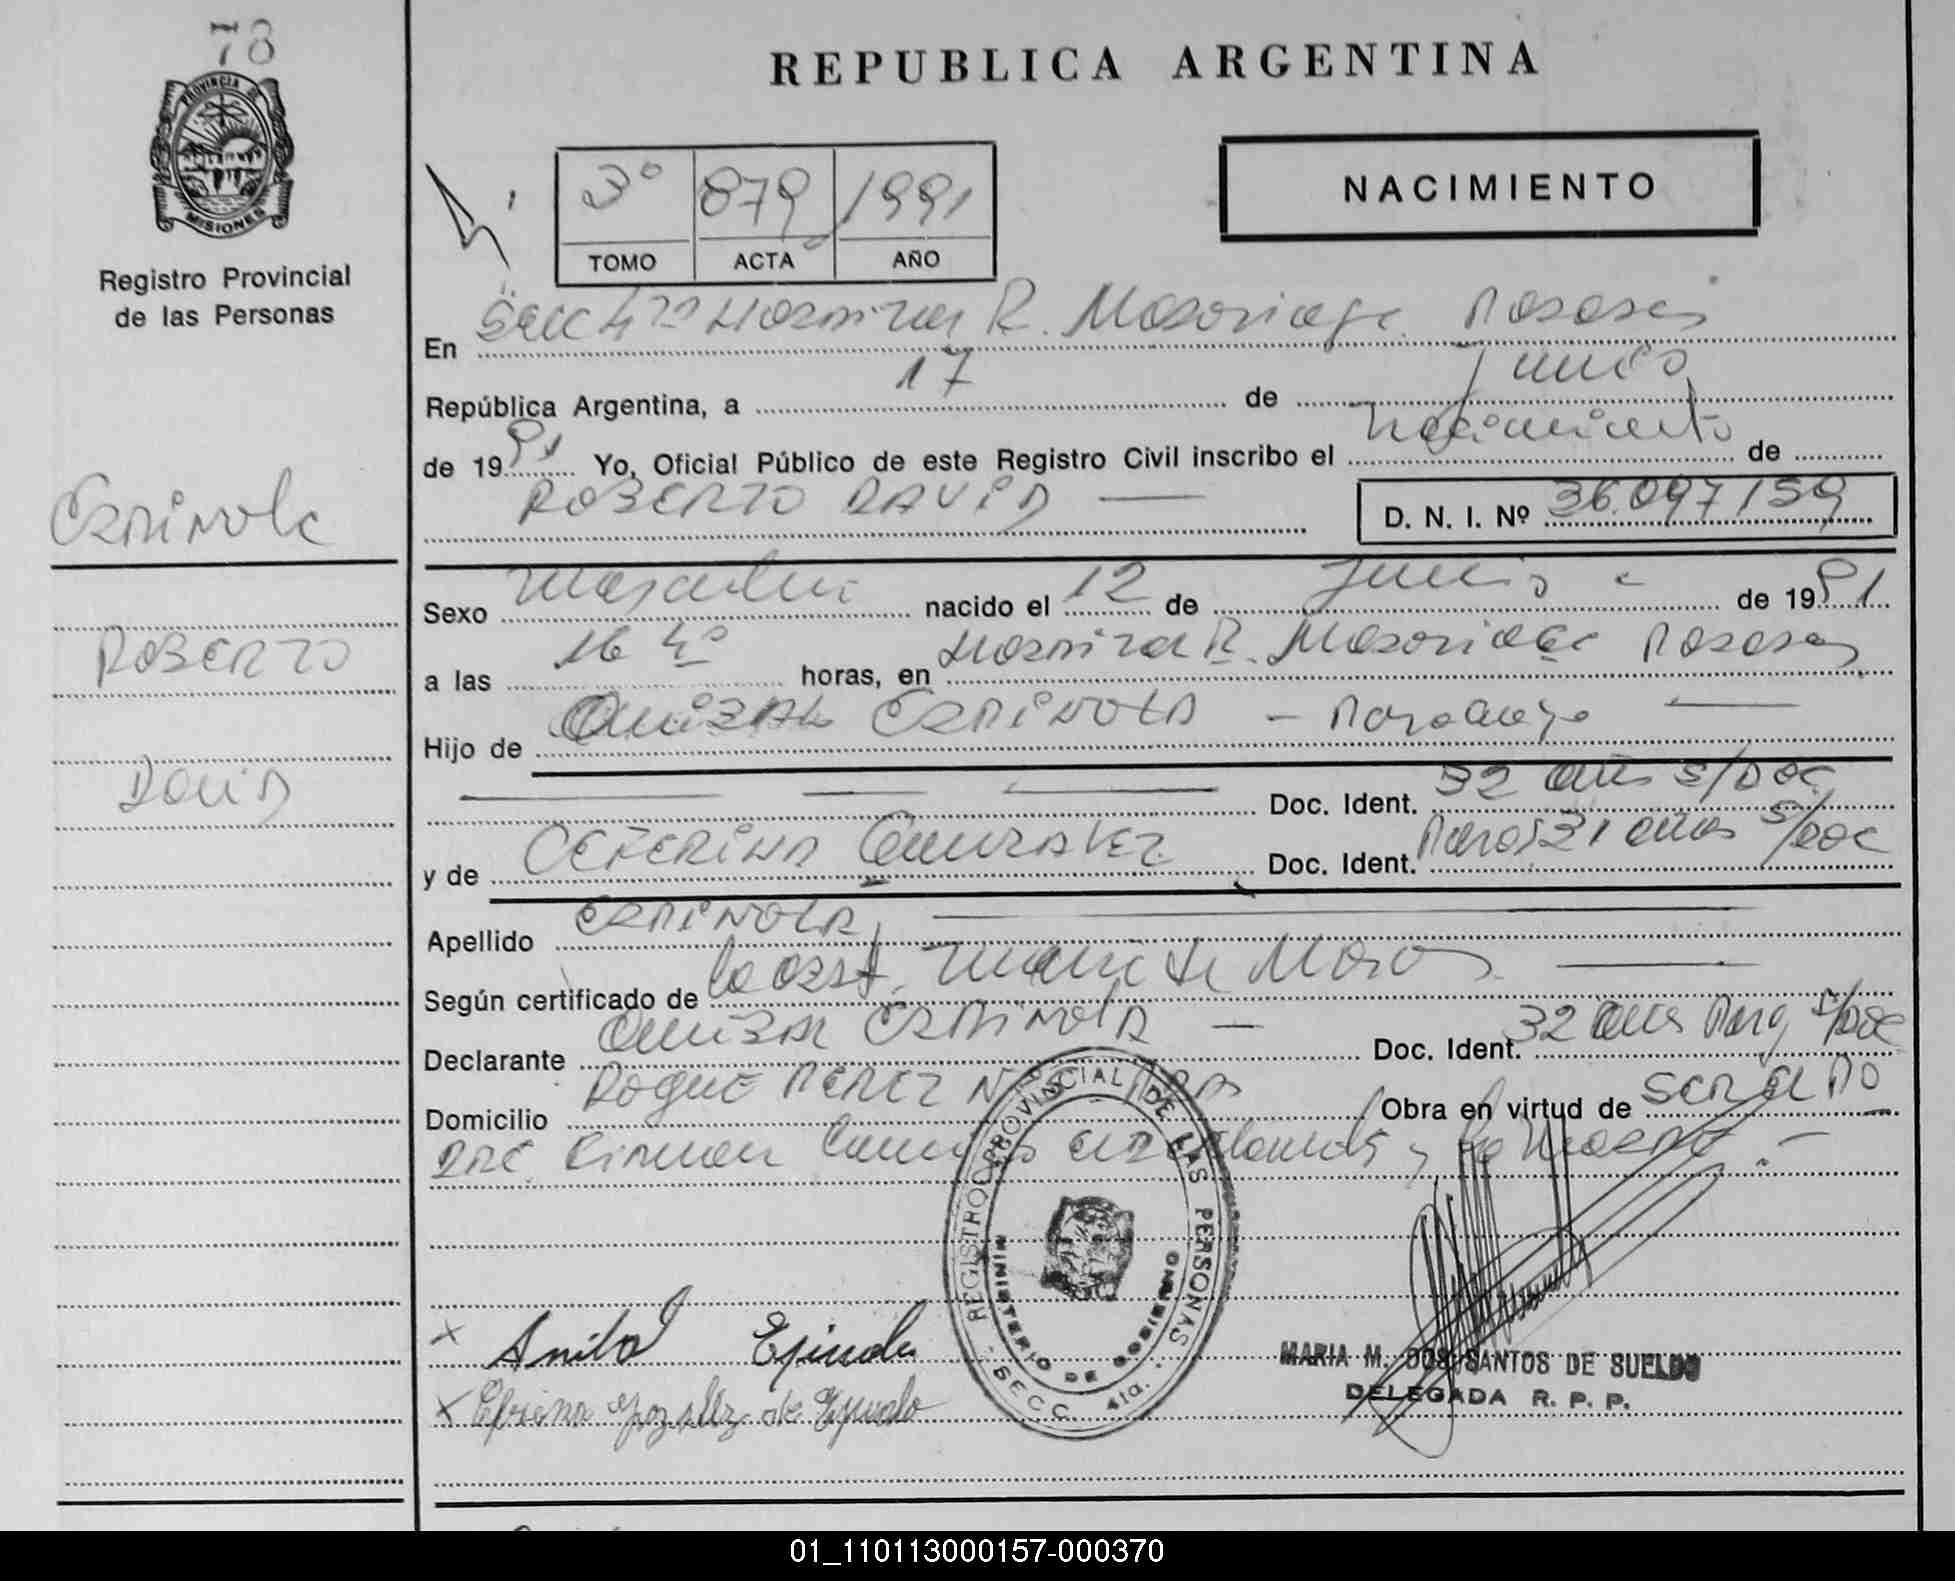 78
PROVINCIA DE
MISIONES
Registro Provincial
de las Personas
REPUBLICA ARGENTINA
3º 879 1991
TOMO ACTA AÑO
NACIMIENTO
En Secc 4ta R. Posadas
República Argentina, a 17 de Junio
de 1991 Yo, Oficial Público de este Registro Civil inscribo el Nacimiento de
ROBERTO DAVID
D. N. I. Nº 36.097159
ESPINOLA
ROBERTO
DAVID
Sexo Masculino nacido el 12 de Junio de 1991
a las 16 horas, en R. Posadas
Hijo de ESPINOLA - Paraguayo
Doc. Ident. 32 años S/DOC
y de CEFERINA GONZALEZ Doc. Ident. 31 años S/DOC
Apellido ESPINOLA
Según certificado de la obst.
Declarante ESPINOLA - Doc. Ident. 32 años Parag S/DOC
Domicilio ROQUE PEREZ Nº Obra en virtud de SER EL PA
DRE
REGISTRO PROVINCIAL DE LAS PERSONAS
MINISTERIO DE GOBIERNO
SECC. 4ta.
x Anibal Espinola
x Gonzalez de Espinola
MARIA M. DOS SANTOS DE SUELDO
DELEGADA R. P. P.
01_110113000157-000370